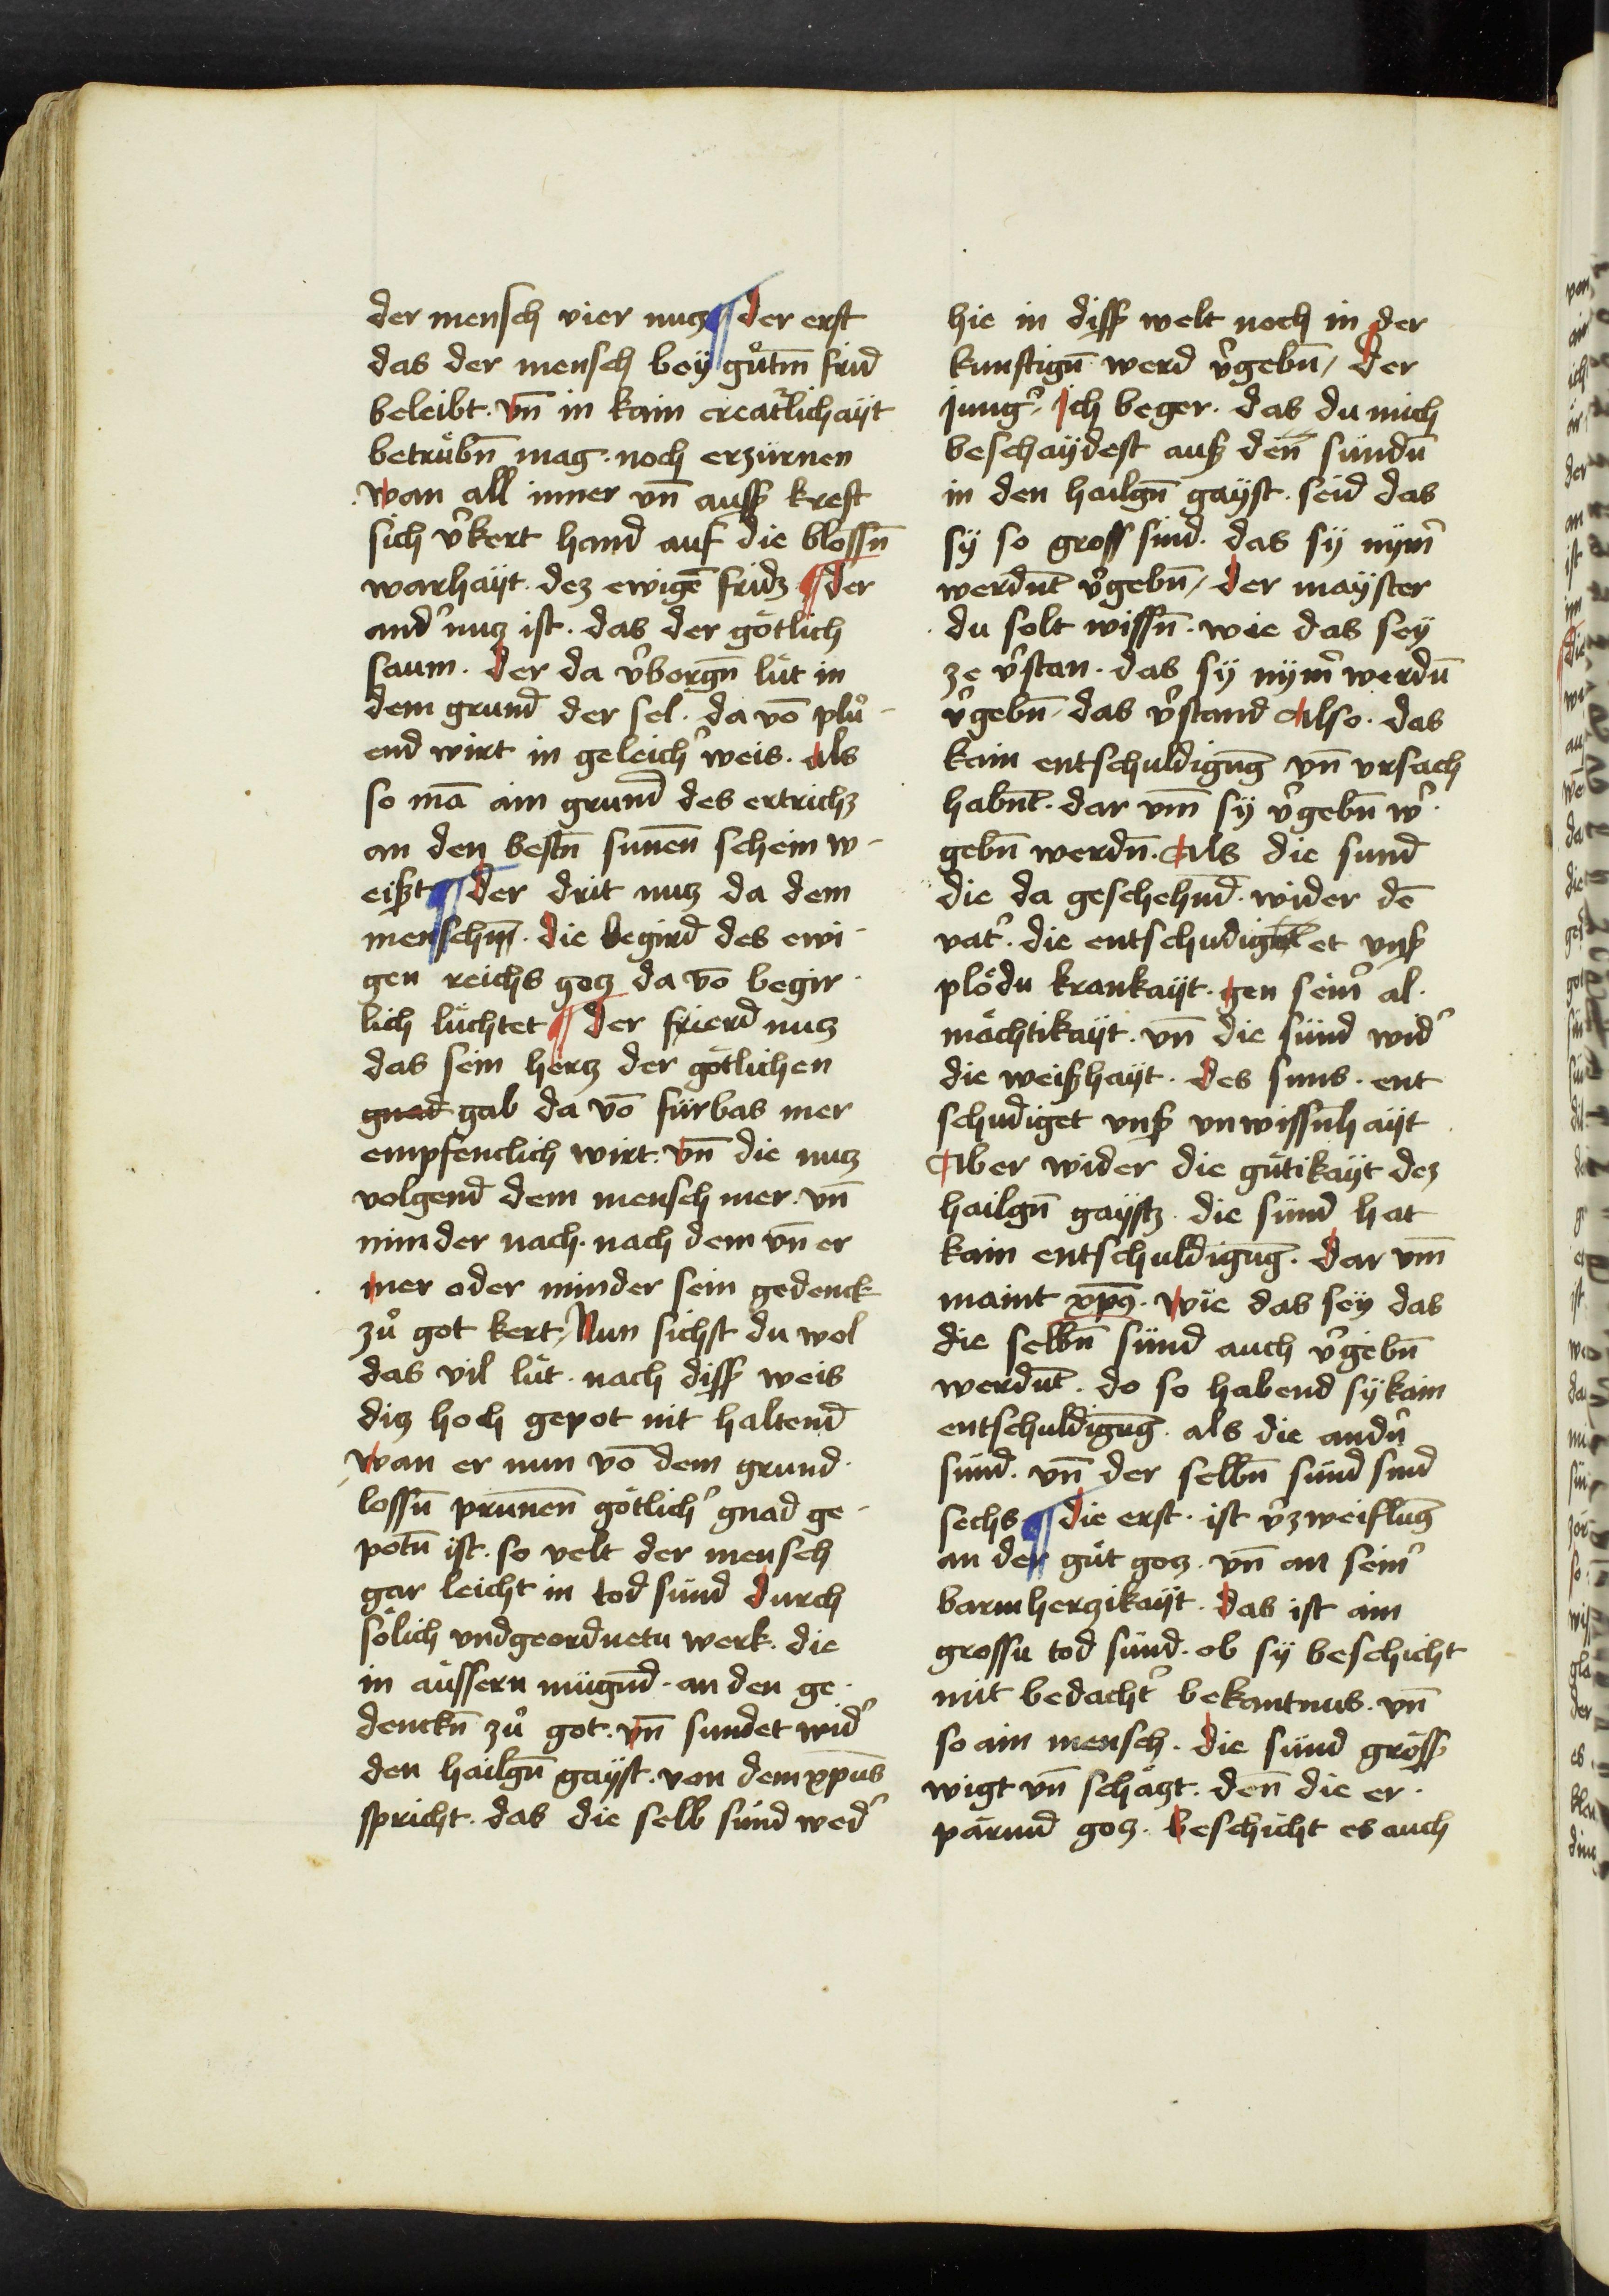 der mensch vier nucz ¶ der erst
das der mensch bey gůtm̄ frid
beleibt. vn̄ in kain creatᷣlichayt
betrübn̄ mag. noch erzürnen
wan all inner vn̄ auss kreft
sich v̉kert hand auf die blossn̄
warhayt. dez ewigē fridz ¶ der
and̉ nucz ist. das der götlich
saum. der da v̉borgn̄ lüt in
dem grund der sel. da vō plů-
end wirt in geleich̉ weis. als
so mā ain grund des ertrichz
an den bestn̄ sunen̄ schein w-
eißt ¶ der drit nucz da dem
menschn̄. die begird des ewi-
gen reichs gocz da vō begir-
lich lüchtet ¶ der frierd nucz
das sein hercz der götlichen
gnad gab da vō fürbas mer
empfenclich wirt. vn̄ die nucz
volgend dem mensch mer. vn̄
minder nach. nach dem vn̄ er
mer oder minder sein gedenck
zů got kert, Nun sichst du wol
das vil lüt. nach diss weis
dicz hoch gepot nit haltend
wan er nun vō dem grund-
lossn̄ prunen̄ götlich̉ gnad ge-
potn̄ ist. so velt der mensch
gar leicht in tod sünd durch
sölich vndgeordnetu werk. die
in äussern mügnd. an den ge-
denckn̄ zů got. vn̄ sundet wid̉
den hailgn̄ gayst. von dem xp̄us
spricht. das die selb sünd wed̉
hie in diss welt noch in der
kunftign̄ werd v̉gebn̄, der
jung̉, Ich beger. das du mich
beschaydest auß den̄ sündn̄
in den hailgn̄ gayst. seid das
sy so gross sind. das sy nym̉
werdn̄t v̉gebn̄, der mayster
du solt wissn̄. wie das sey
ze v̉stan. das sy nym̉ werdn̄
v̉gebn̄. das v̉stand Also. das
kain entschuldigūg vn̄ vrsach
habn̄t. dar vm̄ sy v̉gebn̄ w̉-
gebn̄ werdn̄. Als die sund
die da geschehn̄d. wider dē
vat̉. die entschudiget vnß
plödu krankayt. gen seim̉ al-
mächtikayt. vn̄ die sünd wid̉
die weißhayt. des suns. ent
schudiget vnß vnwissn̄hayt
Aber wider die gütikayt dez
hailgn̄ gaystz. die sünd hat
kain entschuldigūg. dar vm̄
maint xp̄s. wie das sey das
die selbn̄ sünd auch v̉gebn̄
werdn̄t. do so habend sy kain
entschuldigūg. als die andn̉
sünd. vn̄ der selbn̄ sünd sind
sechs ¶ die erst. ist v̉zweiflūg
an der güt gocz. vn̄ an seim̉
barmherczikayt. das ist ain
grossu tod sünd. ob sy beschicht
mit bedacht̉ bekantnus. vn̄
so ain mensch. die sünd gröss
wigt vn̄ schäczt. den̄ die er-
pärmd gocz. beschicht es auch